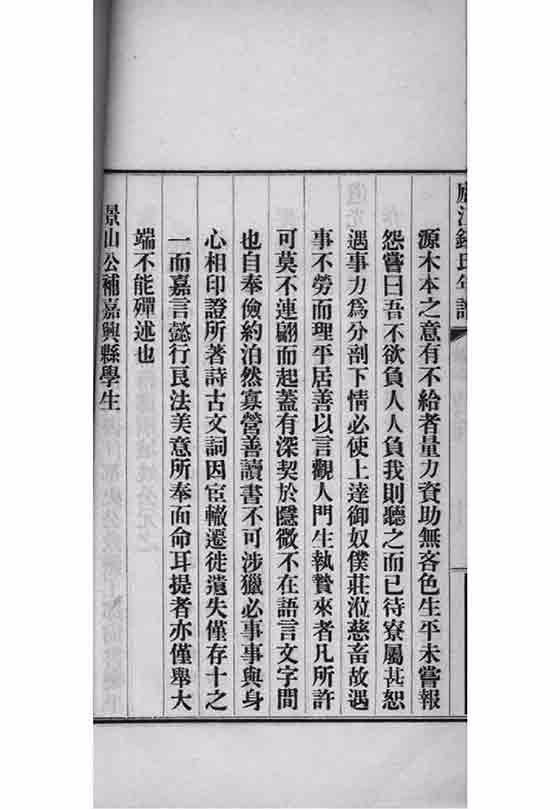 廬江錢氏年譜
源木本之意有不給者量力資助無吝色生平未嘗報
怨嘗曰吾不欲負人人負我則聽之而已待寮屬甚恕
遇事力爲分剖下情必使上達御奴僕莊涖慈畜故遇
事不勞而理平居善以言觀人門生執贄來者凡所許
可莫不連翩而起蓋有深契於隱微不在語言文字間
也自奉儉約泊然寡營善讀書不可涉獵必事事與身
心相印證所著詩古文詞因宦轍遷徙遺失僅存十之
一而嘉言懿行良法美意所奉面命耳提者亦僅舉大
端不能殫述也
景山公補嘉興縣學生